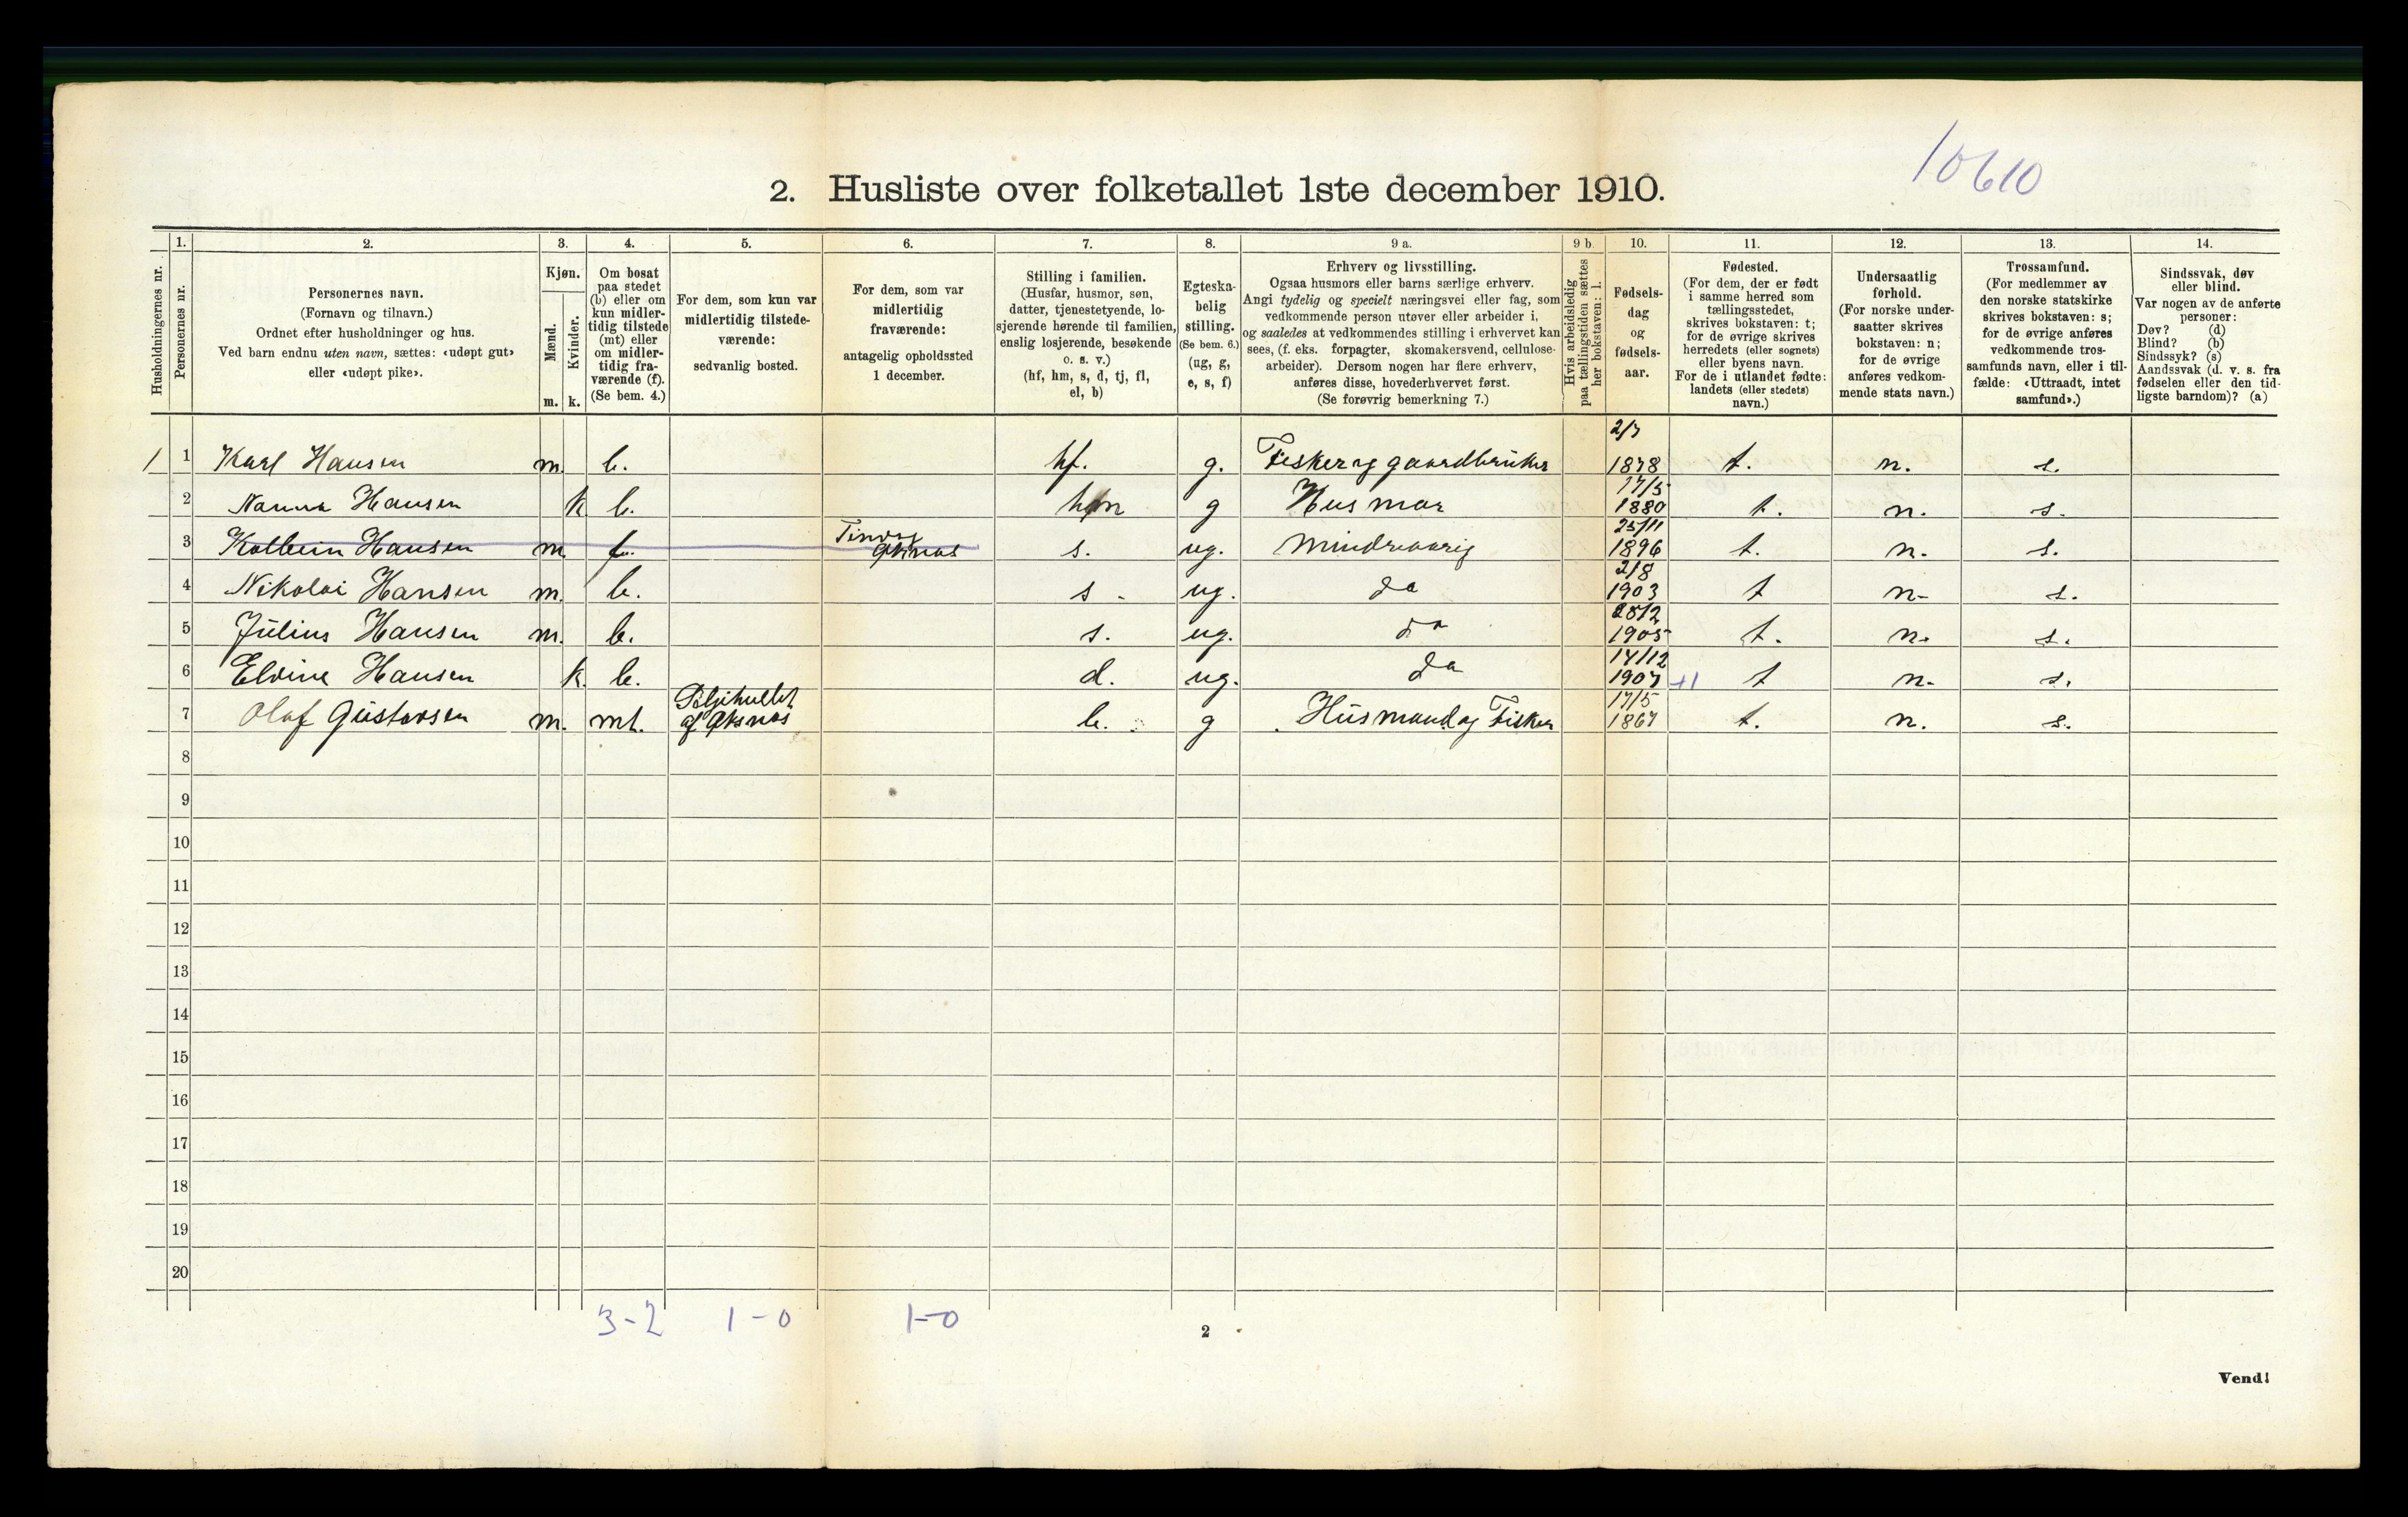 10610
2. Husliste over folketallet 1ste december 1910.
Husholdningernes nr.
1. Personernes nr.
2. Personernes navn.
(Fornavn og tilnavn.)
Ordnet efter husholdninger og hus.
Ved barn endnu uten navn, sættes: «udøpt gut»
eller «udøpt pike».
3. Kjøn.
Mænd. m.
Kvinder. k.
4. Om bosat
paa stedet
(b) eller om
kun midler-
tidig tilstede
(mt) eller
om midler-
tidig fra-
værende (f).
(Se bem. 4.)
5. For dem, som kun var
midlertidig tilstede-
værende:
sedvanlig bosted.
6. For dem, som var
midlertidig
fraværende:
antagelig opholdssted
1 december.
7. Stilling i familien.
(Husfar, husmor, søn,
datter, tjenestetyende, lo-
sjerende hørende til familien,
enslig losjerende, besøkende
o. s. v.)
(hf, hm, s, d, tj, fl,
el, b)
8. Egteska-
belig
stilling.
(Se bem. 6.)
(ug, g,
e, s, f)
9 a. Erhverv og livsstilling.
Ogsaa husmors eller barns særlige erhverv.
Angi tydelig og specielt næringsvei eller fag, som
vedkommende person utøver eller arbeider i,
og saaledes at vedkommendes stilling i erhvervet kan
sees, (f. eks. forpagter, skomakersvend, cellulose-
arbeider). Dersom nogen har flere erhverv,
anføres disse, hovederhvervet først.
(Se forøvrig bemerkning 7.)
9 b. Hvis arbeidsledig
paa tællingstiden sættes
her bokstaven: l.
10. Fødsels-
dag
og
fødsels-
aar.
11. Fødested.
(For dem, der er født
i samme herred som
tællingsstedet,
skrives bokstaven: t;
for de øvrige skrives
herredets (eller sognets)
eller byens navn.
For de i utlandet fødte:
landets (eller stedets)
navn.)
12. Undersaatlig
forhold.
(For norske under-
saatter skrives
bokstaven: n;
for de øvrige
anføres vedkom-
mende stats navn.)
13. Trossamfund.
(For medlemmer av
den norske statskirke
skrives bokstaven: s;
for de øvrige anføres
vedkommende tros-
samfunds navn, eller i til-
fælde: «Uttraadt, intet
samfund».)
14. Sindssvak, døv
eller blind.
Var nogen av de anførte
personer:
Døv? (d)
Blind? (b)
Sindssyk? (s)
Aandssvak (d. v. s. fra
fødselen eller den tid-
ligste barndom)? (a)
1 1 Karl Hansen m. b. hf. g. Fisker og gaardbruker 2/7 1878 t. n. s.
2 Nanna Hansen k b. hm g Husmor 17/5 1880 t. n. s.
3 Kolbein Hansen m. f. s. ug. Mindreaarig 25/11 1896 t. n. s.
4 Nikolai Hansen m. b. s - ug. da 2/8 1903 t n- s.
5 Julius Hansen m. b. s. ug. da 28/2 1905 t. n. s.
6 Elvine Hansen k. b. d. ug. da 14/12 1907 +1 t n- s.
7 Olaf Gustavsen m. mt. af Aksnes b. g Husmand og Fisker 17/5 1867 t. n. s.
8
9
10
11
12
13
14
15
16
17
18
19
20
3-2 1-0 1-0
2
Vend!